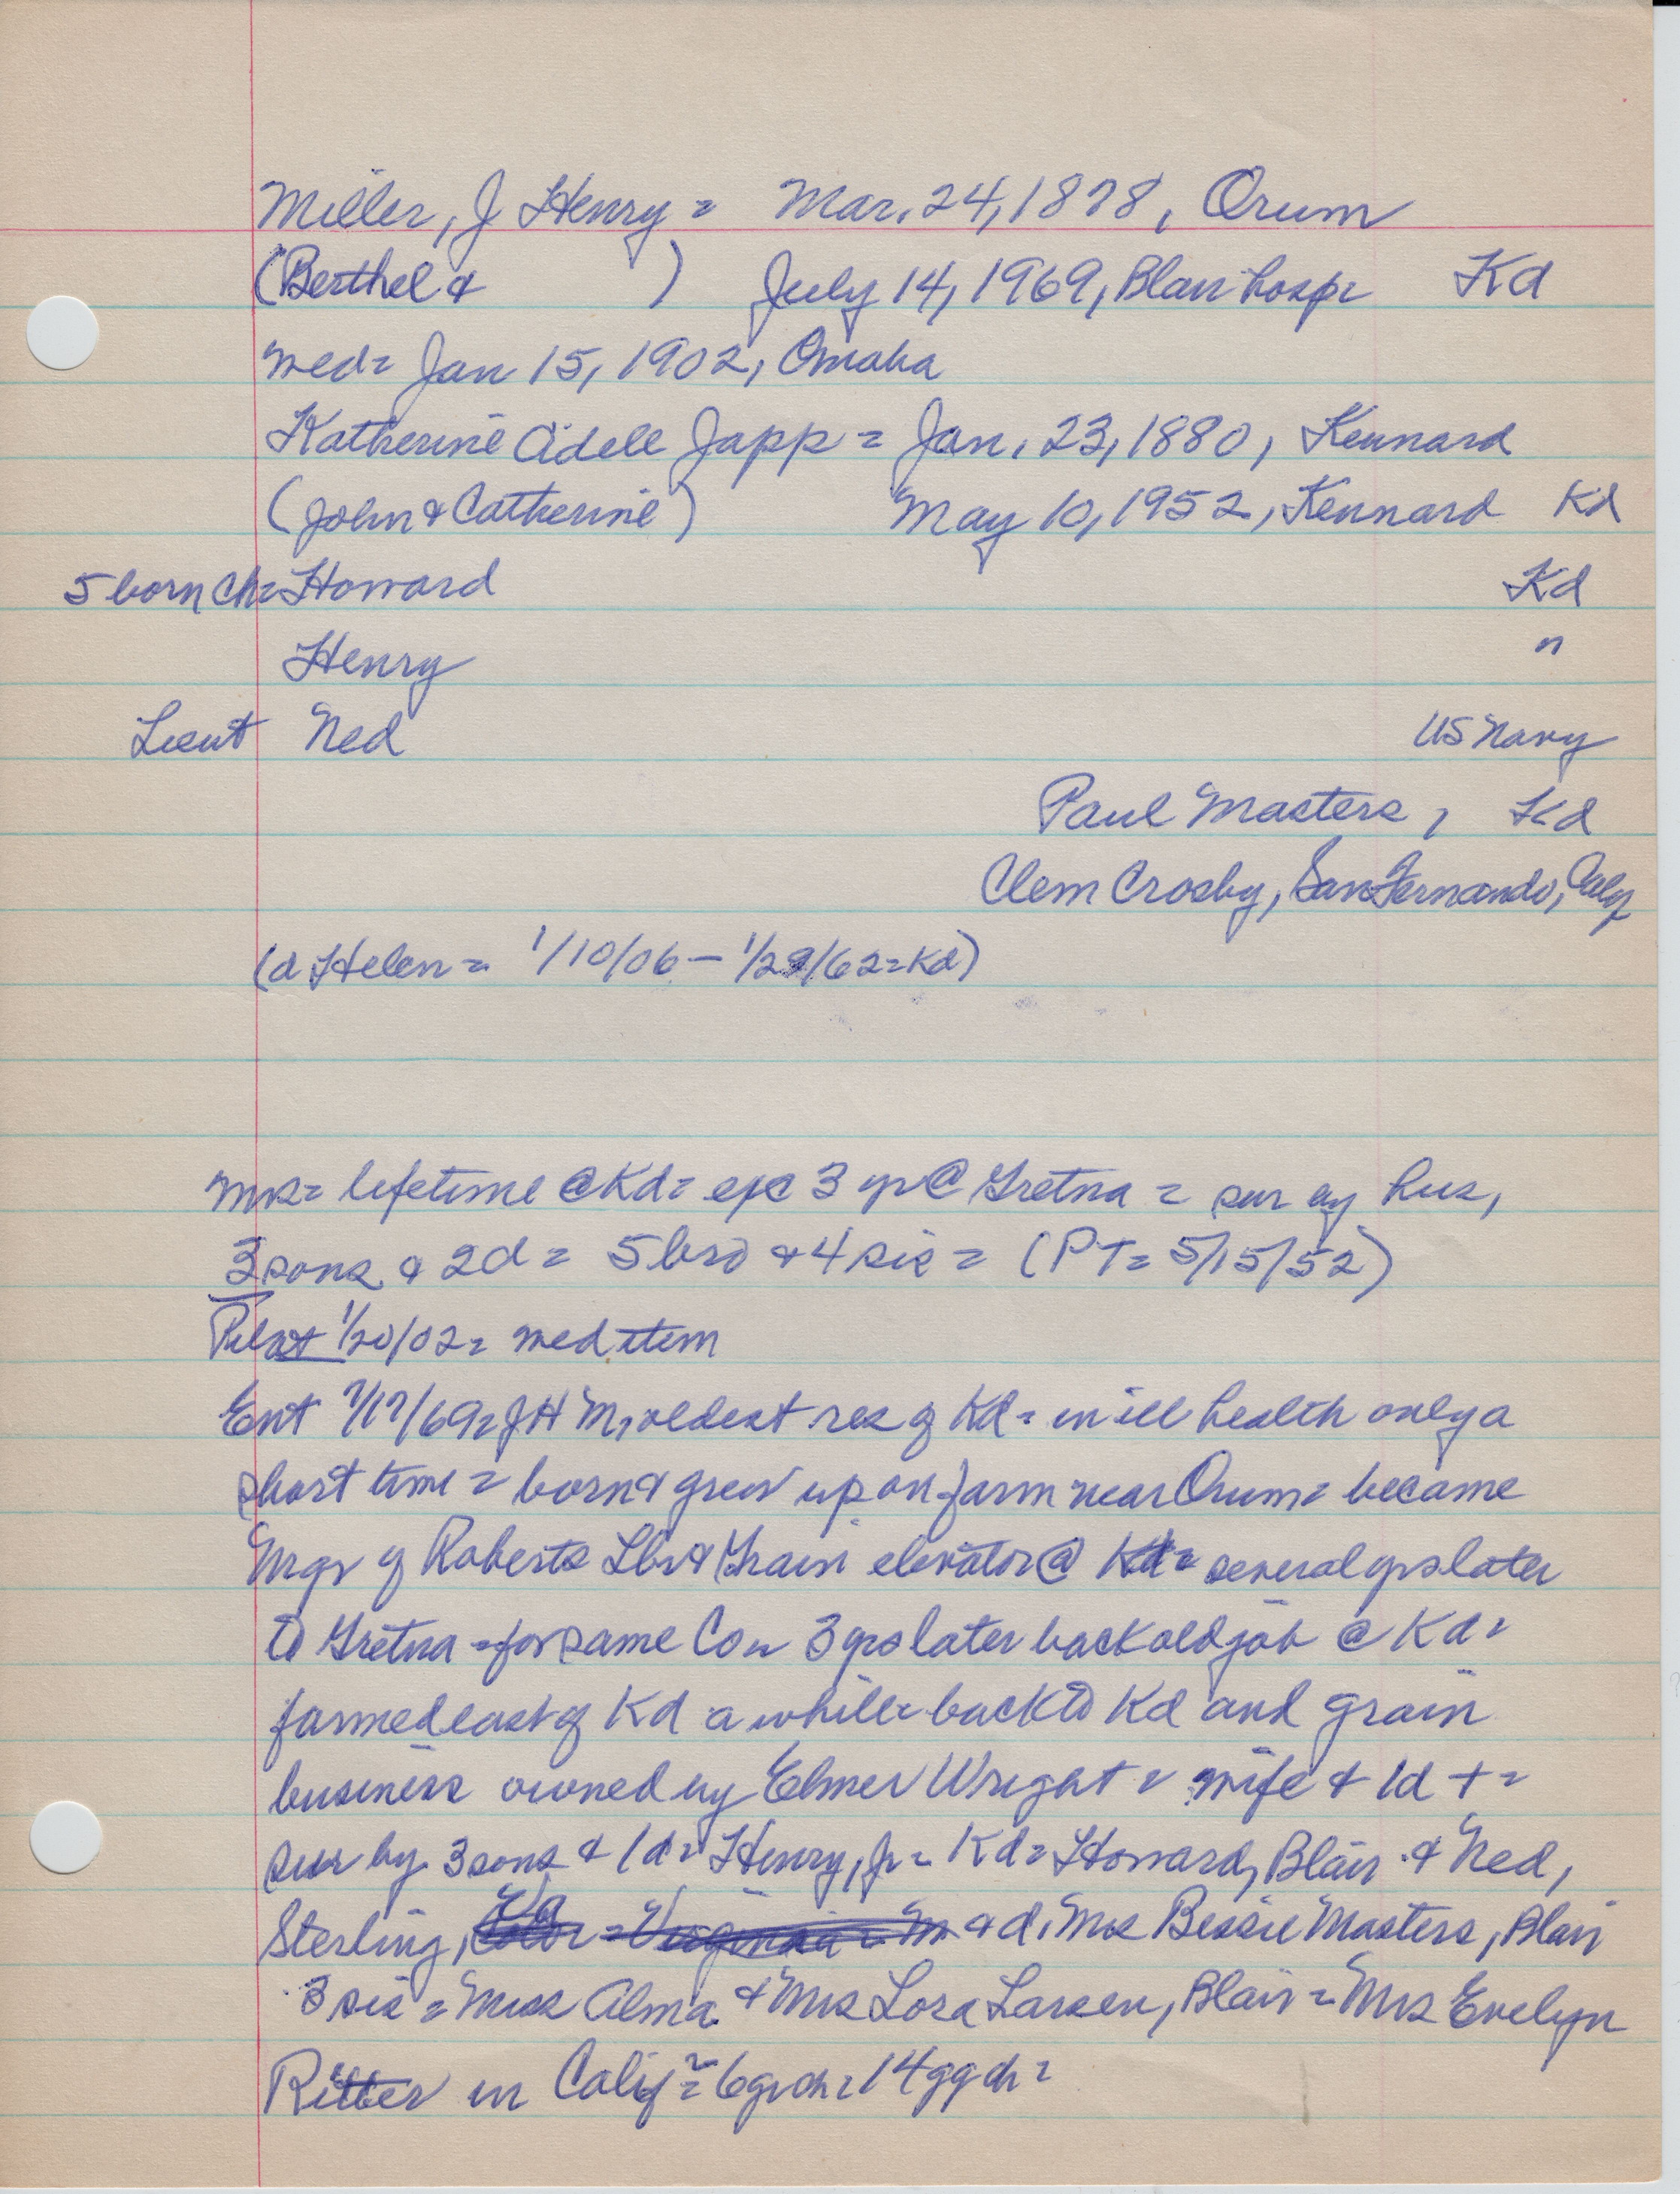 Miller, J Henry = Mar. 24, 1878, Orum
(Berthel & ) July 14, 1969, Blair hosp = Kd
wed = Jan 15, 1902, Omaha
Katherine Adell Japp = Jan. 23, 1880, Kennard
(John & Catherine) May 10, 1952, Kennard Kd
5 born Ch = Howard Kd
Henry "
Lieut Ned US Navy
Paul Masters, Kd
Clem Crosby, San Fernando, Calif
(d Helen = 1/10/06 - 1/29/62 = Kd)
Mrs = lifetime @ Kd = exc 3 yr @ Gretna = sur by hus,
3 sons & 2d = 5 bro & 4 sis = (PT = 5/15/52)
Pilot 1/20/02 = wed item
Ent 7/17/69 = JH M, oldest res of Kd = in ill health only a
short time = born & grew up on farm near Orum = became
Mgr of Roberts Lbr & Grain elevator @ Kd = several yrs later
to Gretna - for same Co = 3 yrs later back old job @ Kd =
farmed east of Kd a while = back to Kd and grain
business owned by Elmer Wright = wife & 1d + =
sur by 3 sons & 1d = Henry, Jr = Kd = Howard, Blair & Ned,
Sterling, Va & d. Mrs Bessie Masters, Blair
3 sis = Miss Alma & Mrs Lora Larsen, Blair = Mrs Evelyn
Ritter in Calif = 6 grch = 14 ggch =